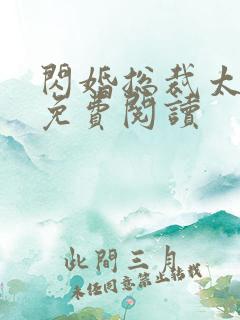 閃婚總裁太
免費閱讀
此間三月
未經同意禁止轉載